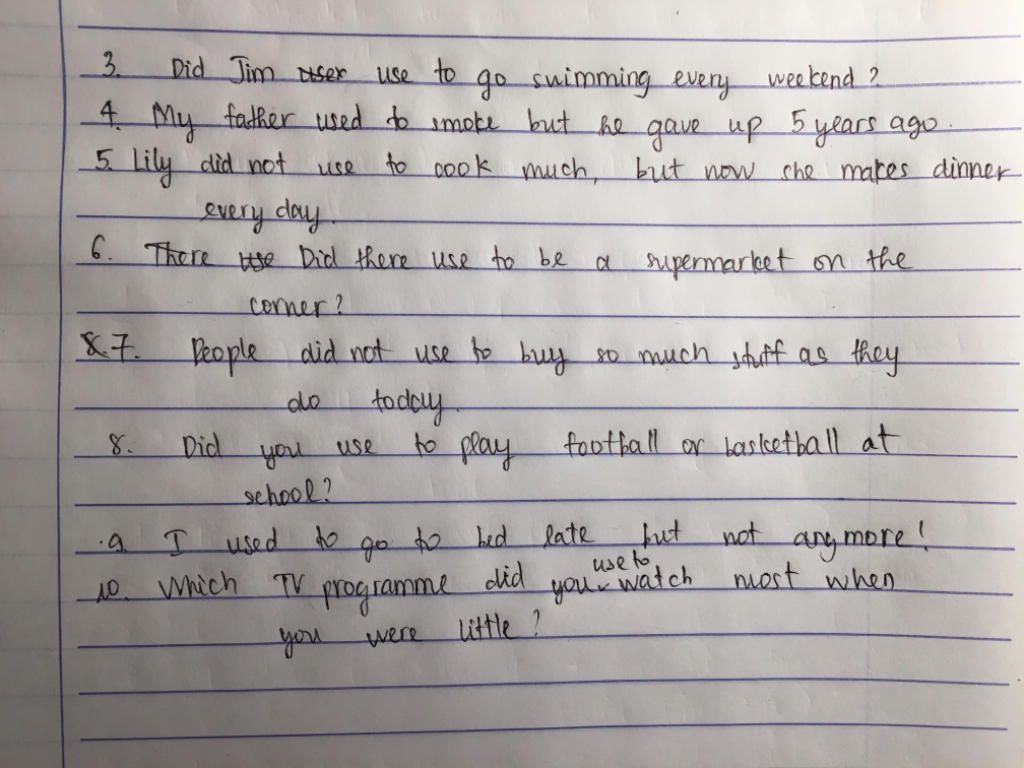 3. Did Jim user use to go swimming every weekend?
4. My father used to smoke but he gave up 5 years ago.
5. Lily did not use to cook much, but now she makes dinner
every day.
6. There use Did there use to be a supermarket on the
corner?
8.7. People did not use to buy so much stuff as they
do today.
8. Did you use to play football or basketball at
school?
9. I used to go to bed late but not anymore!
use to
10. Which TV programme did you watch most when
you were little?